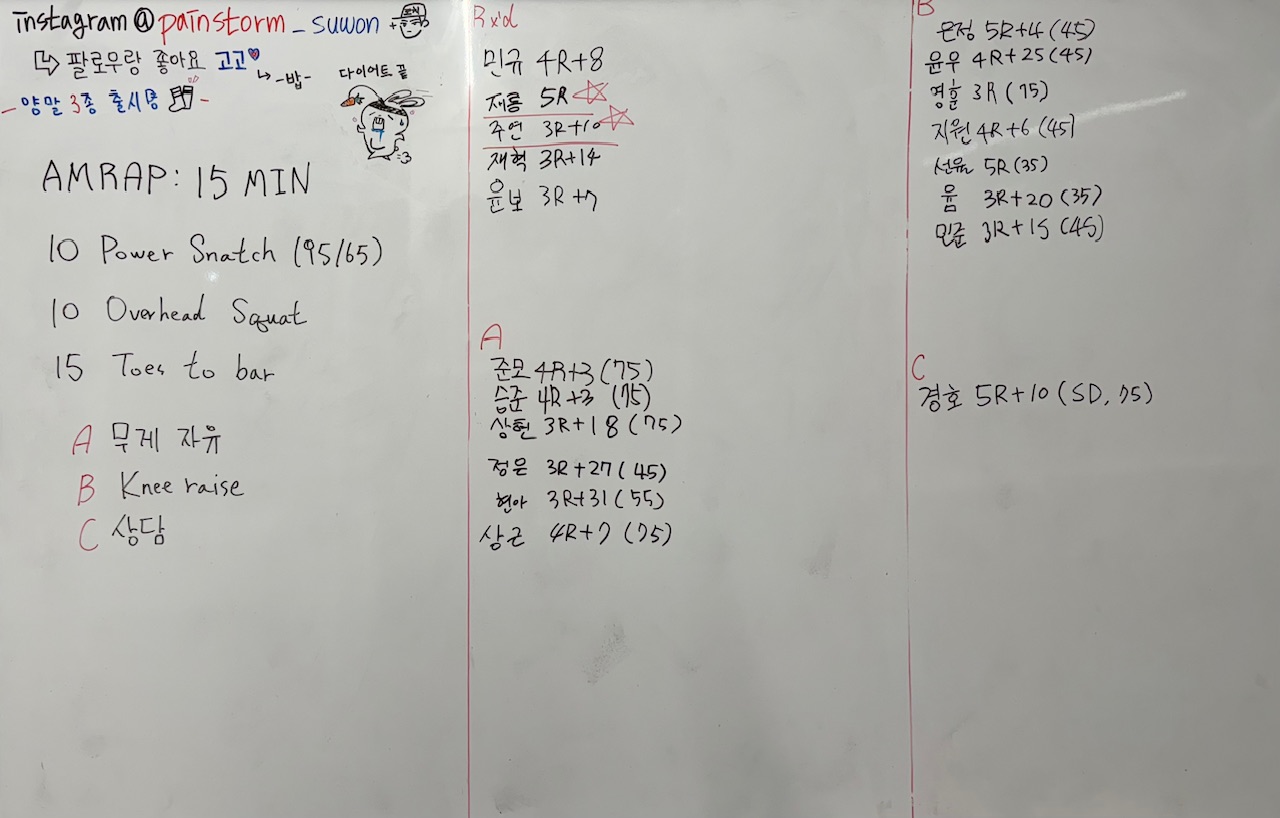 instagram@painstorm_suwon
↳ 팔로우랑 좋아요 고고♥
↳ -밥-
다이어트 끝
- 양말 3종 출시 -
AMRAP: 15 MIN
10 Power Snatch (95/65)
10 Overhead Squat
15 Toes to bar
A 무게 자유
B Knee raise
C 상담
Rx'd
민규 4R+8
재룡 5R ☆
주연 3R+10 ☆
재혁 3R+14
윤보 3R+7
A
준모 4R+3 (75)
승준 4R+3 (75)
상헌 3R+18 (75)
정은 3R+27 (45)
현아 3R+31 (55)
상근 4R+7 (75)
B
은정 5R+4 (45)
윤우 4R+25 (45)
영훈 3R (75)
지원 4R+6 (45)
5R (35)
윰 3R+20 (35)
민준 3R+15 (45)
C
경호 5R+10 (SD, 75)